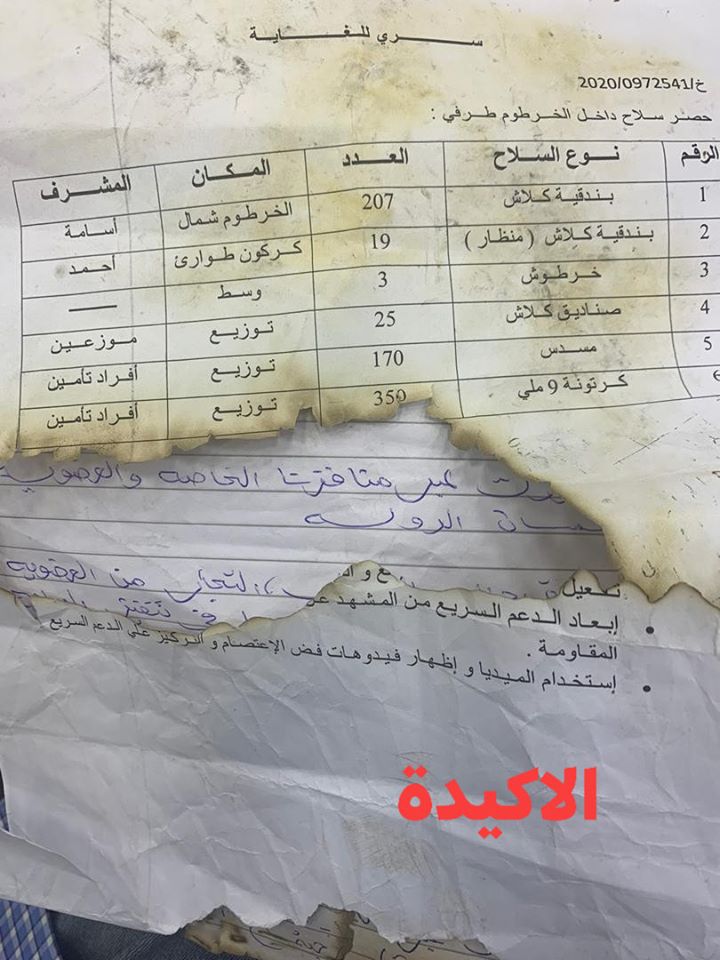 سري للغاية
خ/2020/0972541
حصر سلاح داخل الخرطوم طرفي :
الرقم نوع السلاح العدد المكان المشرف
1 بندقية كلاش 207 الخرطوم شمال أسامة
2 بندقية كلاش ( منظار ) 19 كركون طوارئ أحمد
3 خرطوش 3 وسط ——
4 صناديق كلاش 25 توزيع موزعين
5 مسدس 170 توزيع أفراد تأمين
6 كرتونة 9 ملي 350 توزيع أفراد تأمين
الخاصه والعضوية
الدوله
تفعيل
من العضويه
• إبعاد الدعم السريع من المشهد
المقاومة .
• إستخدام الميديا و إظهار فيدوهات فض الإعتصام و التركيز علي الدعم السريع
الاكيدة